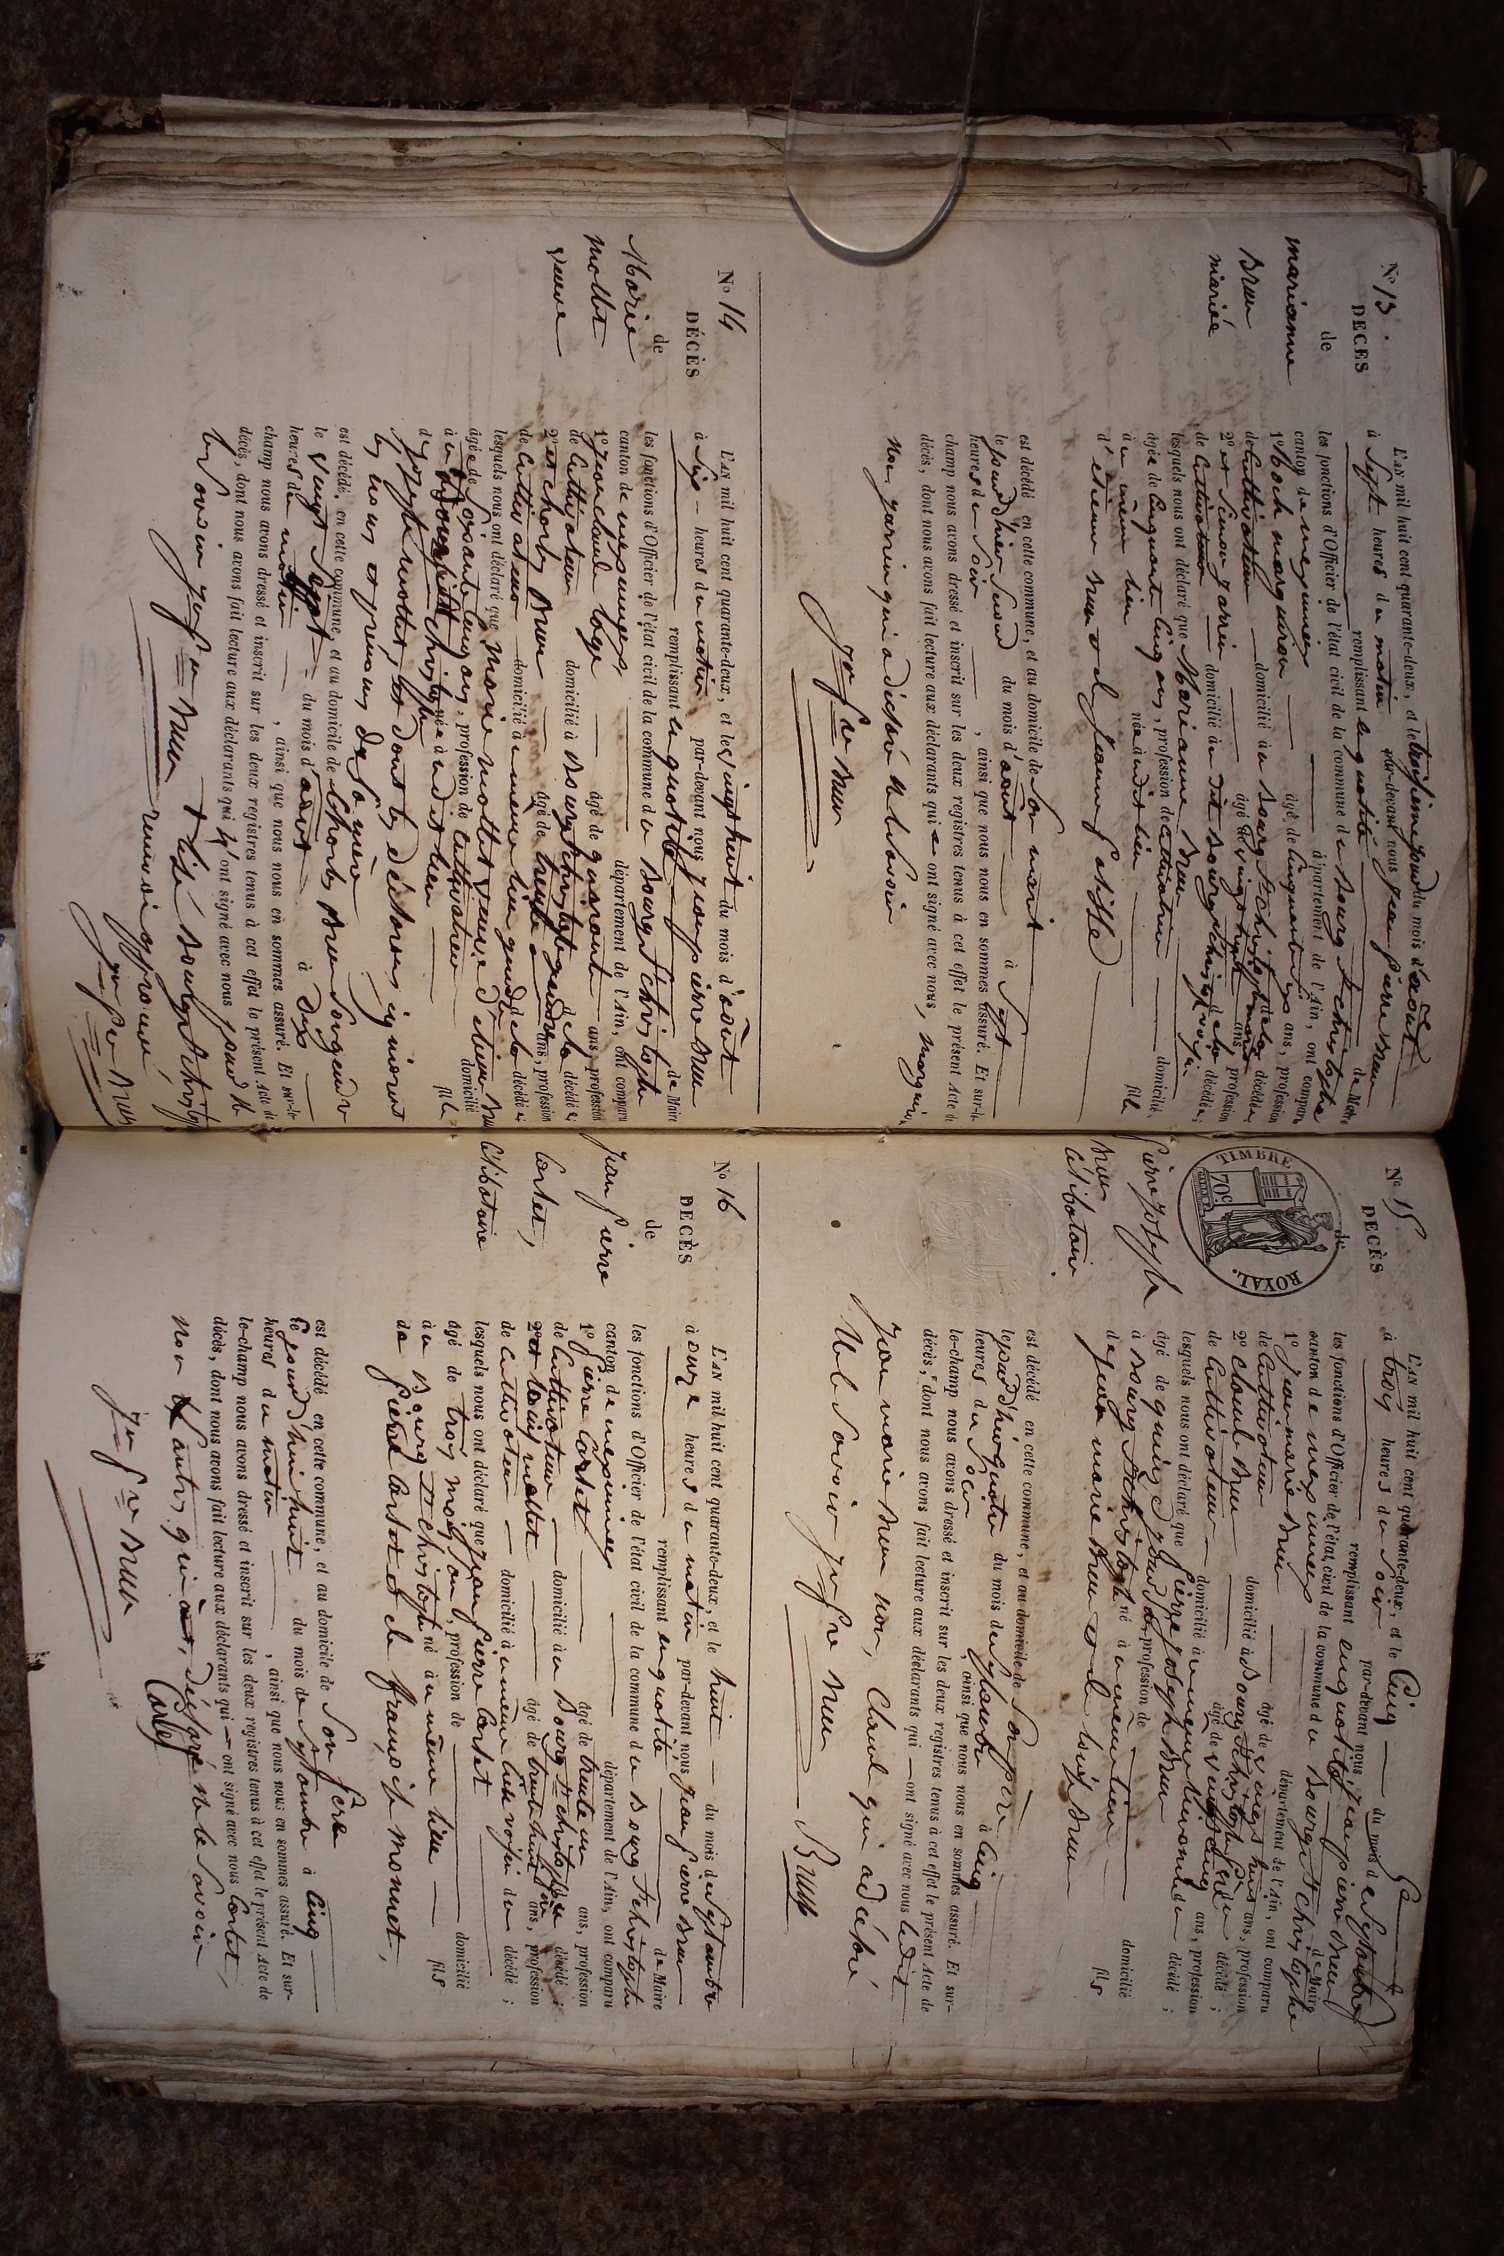 No 13.
DÉCÈS
de
marianne
Brun
mariée
L'AN mil huit cent quarante-deux, et le troisieme jour du mois d'aout
à Sept heures du matin par-devant nous jean pierre Brun
remplissant en qualité de Maire
les fonctions d'Officier de l'état civil de la commune de Bourg St christophe
canton de meximieux département de l'Ain, ont comparu
1º Roch marguiron âgé de Cinquante ans, profession
de Cultivateur domicilié à Bourg St christophe décédée
2º et Simon jarrin âgé de vingt ans, profession
de Cultivateur domicilié à dit Bourg St christophe voisin de la décédée ;
lesquels nous ont déclaré que Marianne Brun
âgée de Cinquante Cinq ans, profession de Cultivatrice domiciliée
à u même lieu née à u dit lieu fille
d'étienne Brun et de jeanne
est décédée en cette commune, et au domicile de son mari
le jourd'hier Second du mois d'aout à Sept
heures du Soir, ainsi que nous nous en sommes assuré. Et sur-le-
champ nous avons dressé et inscrit sur les deux registres tenus à cet effet le présent Acte de
décès, dont nous avons fait lecture aux déclarants qui ont signé avec nous, marguiron
non jarrin qui a déclaré ne le savoir
jn pre Brun
No 14
DÉCÈS
de
Marie
mollet
veuve
L'AN mil huit cent quarante-deux, et le vingt huit du mois d'août
à Six heures du matin par-devant nous jean pierre Brun
remplissant en qualité de Maire
les fonctions d'Officier de l'état civil de la commune de Bourg St christophe
canton de meximieux département de l'Ain, ont comparu
1º jean claude loge âgé de quarante ans, profession
de Cultivateur domicilié à Bourg St christophe gendre de la décédée ;
2º et charles Brun âgé de trente ans, profession
de Cultivateur domicilié à u même lieu gendre de la décédée ;
lesquels nous ont déclaré que marie mollet veuve d'étienne Brun
âgée de Soixante Cinq ans, profession de Cultivatrice domiciliée
à u Bourg St christophe née à u dit lieu fille
de joseph mollet, et dont les déclarans ignorent
les noms et prenoms de sa mère
est décédée, en cette commune, et au domicile de Charles Brun Son gendre
le vingt Sept du mois d'aout à Dix
heures du matin, ainsi que nous nous en sommes assuré. Et sur-le-
champ nous avons dressé et inscrit sur les deux registres tenus à cet effet le présent Acte de
décès, dont nous avons fait lecture aux déclarants qui n'ont signé avec nous pour ne
le Savoir jn pre Brun + lisé Bourg St christophe
renvoi approuvé
jn pre Brun
No 15
DÉCÈS
de
pierre joseph
Brun
Célibataire
TIMBRE
70c
ROYAL.
L'AN mil huit cent quarante-deux, et le Cinq du mois de Septembre
à trois heures du Soir par-devant nous jean pierre Brun
remplissant en qualité de Maire
les fonctions d'Officier de l'état civil de la commune de Bourg St christophe
canton de meximieux département de l'Ain, ont comparu
1º jean marie Brun âgé de vingt huit ans, profession
de Cultivateur domicilié à Bourg St christophe du décédé ;
2º claude Brun âgé de vingt cinq ans, profession
de Cultivateur domicilié à u même lieu du décédé ;
lesquels nous ont déclaré que pierre joseph Brun
âgé de quinze jours profession de domicilié
à Bourg St christophe né à u même lieu fils
de jean marie Brun et de louise Brun
est décédé en cette commune, et au domicile de Son père
le jourd'hier quatre du mois de Septembre à Cinq
heures du Soir, ainsi que nous nous en sommes assuré. Et sur-
le-champ nous avons dressé et inscrit sur les deux registres tenus à cet effet le présent Acte de
décès, dont nous avons fait lecture aux déclarants qui ont signé avec nous ledit
jean marie Brun non, Claude qui a déclaré
Ne le Savoir jn pre Brun Brun
No 16
DÉCÈS
de
jean pierre
Cartet,
Célibataire
L'AN mil huit cent quarante-deux, et le huit du mois de Septembre
à onze heures du matin par-devant nous jean pierre Brun
remplissant en qualité de Maire
les fonctions d'Officier de l'état civil de la commune de Bourg St christophe
canton de meximieux département de l'Ain, ont comparu
1º pierre Cartet âgé de trente un ans, profession
de Cultivateur domicilié à u Bourg St christophe père du décédé ;
2º et louis mollet âgé de trente huit ans, profession
de Cultivateur domicilié à u même lieu voisin du décédé ;
lesquels nous ont déclaré que jean pierre Cartet
âgé de trois mois, profession de domicilié
à u Bourg St christophe né à u même lieu fils
de pierre Cartet et de françoise monnet,
est décédé en cette commune, et au domicile de Son père
le jourd'hui huit du mois de Septembre à Cinq
heures du matin, ainsi que nous nous en sommes assuré. Et sur-
le-champ nous avons dressé et inscrit sur les deux registres tenus à cet effet le présent Acte de
décès, dont nous avons fait lecture aux déclarants qui ont signé avec nous Cartet,
non l'autre qui a déclaré ne le Savoir
jn pre Brun Cartet